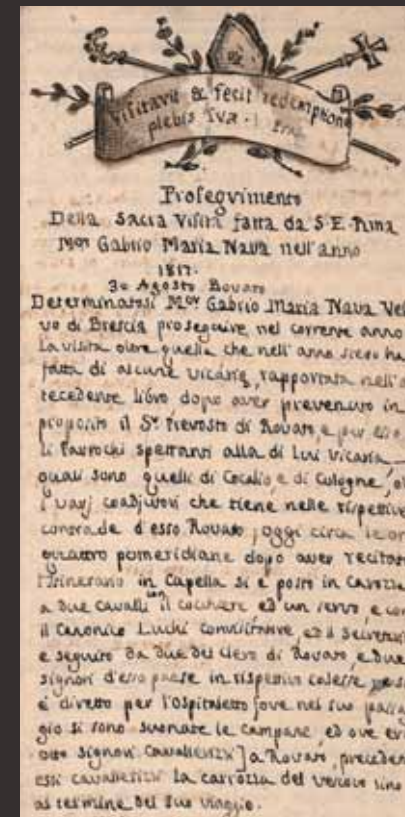 Visitavit & fecit redemption
plebis svæ.
Prosegvimento
Della Sacra Visita fatta da S. E. Rma
Mor Gabrio Maria Nava nell'anno
1817.
30 Agosto Rovato
Determinatosi Mor Gabrio Maria Nava Ves
vo di Brescia proseguire nel corrente anno
La visita oltre quella che nell'anno stesso ha
fatta di alcune vicarie, rapportata nell'a
tecedente libro dopo aver prevenuto in
proposito il Sr Prevosto di Rovato, e per esso
li Parrochi spettanti alla di Lui Vicaria
quali sono quelli di Cocalio, e di Cologne, ol
i varj coadjutori che tiene nelle rispettive
contrade d'esso Rovato, oggi circa le or
quattro pomeridiane dopo aver recitato
l'Itinerario in Capella si è posto in Carozza
a due cavalli con il cocchiere ed un servo, e con
il Canonico Luchi convisitatore, ed il Secretari
e seguito da due del clero di Rovato, e due
signori d'esso paese in rispettive calesse
è diretto per l'Ospitaletto ove nel suo passag
gio si sono suonate le campane, ed ove
otto signori Cavallerizzi] a Rovato, preceden
essi cavallerizzi la carrozza del vescovo sino
al termine del suo viaggio.